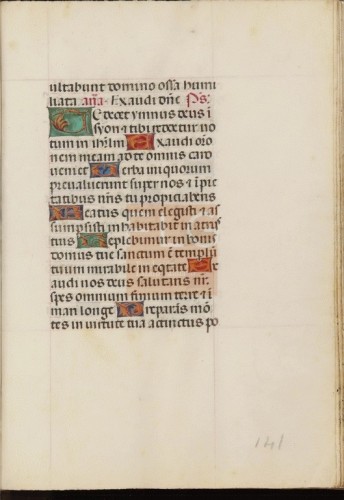 ultabunt domino ossa humi
liata. aña. Exaudi dñe. Ps.
E decet ymnus deus ī
syon & tibi reddetur uo
tum in ihrlm Exaudi orō
nem meam ad te omnis caro
veniet Verba iniquorum
preualuerunt super nos & īpie
tatibus nr̄is tu propiciaberis
Beatus quem elegisti & as
sumpsisti inhabitabit in atriis
tuis Replebimur in bonis
domus tue sanctum ē templū
tuum mirabile in eqtate Ex
audi nos deus salutaris nr̄
spes omnium finium terre & ī
mari longe Preparās mō
tes in uirtute tua accinctus po
141